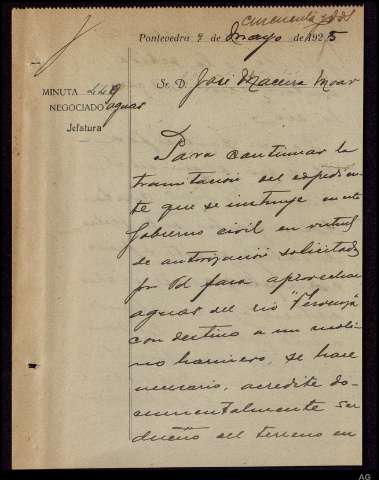 cincuenta y dos
Pontevedra 9 de Mayo de 1925
MINUTA
NEGOCIADO aguas
Jefatura
Sr. D. José Maceira Moar
Para continuar la
tramitación del expedien-
te que se instruye en este
Gobierno civil en virtud
de autorización solicitada
por Vd para aprovechar
aguas del rio
con destino a un moli-
no harinero, se hace
necesario, acredite do-
cumentalmente ser
dueño del terreno en
AG